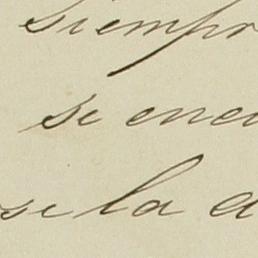 siempr
se encu
se la a